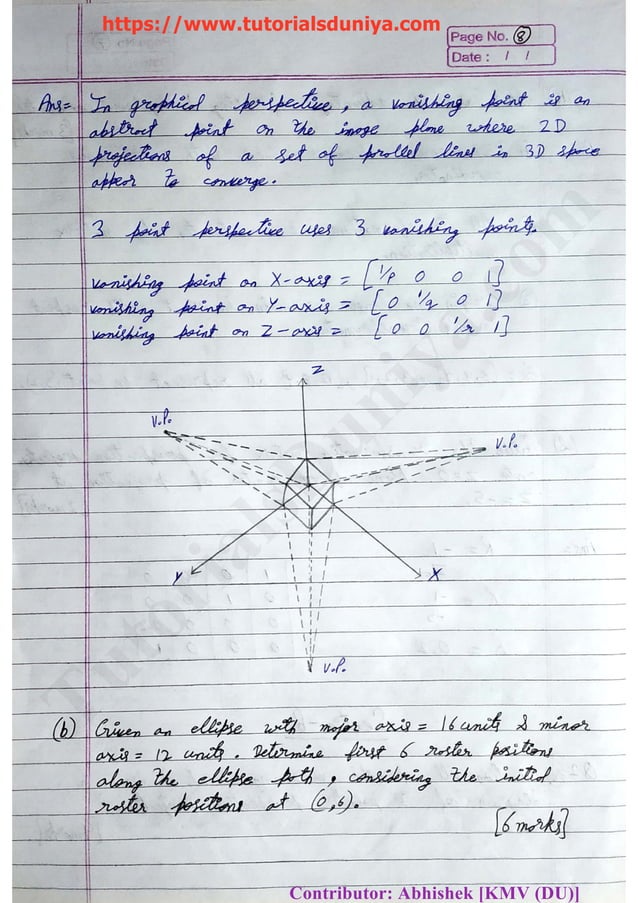 https://www.tutorialsduniya.com
Page No. 8
Date : / /
Ans= In graphical perspective, a vanishing point is an
abstract point on the image plane where 2D
projections of a set of parallel lines in 3D space
appear to converge.
3 point perspective uses 3 vanishing points.
vanishing point on X-axis = [1/p 0 0 1]
vanishing point on Y-axis = [0 1/q 0 1]
vanishing point on Z-axis = [0 0 1/r 1]
Z
V.P.
V.P.
Y
X
V.P.
(b) Given an ellipse with major axis = 16 units & minor
axis = 12 units. Determine first 6 raster positions
along the ellipse path, considering the initial
raster positions at (0,6).
[6 marks]
Tutorialsduniya.com
Contributor: Abhishek [KMV (DU)]